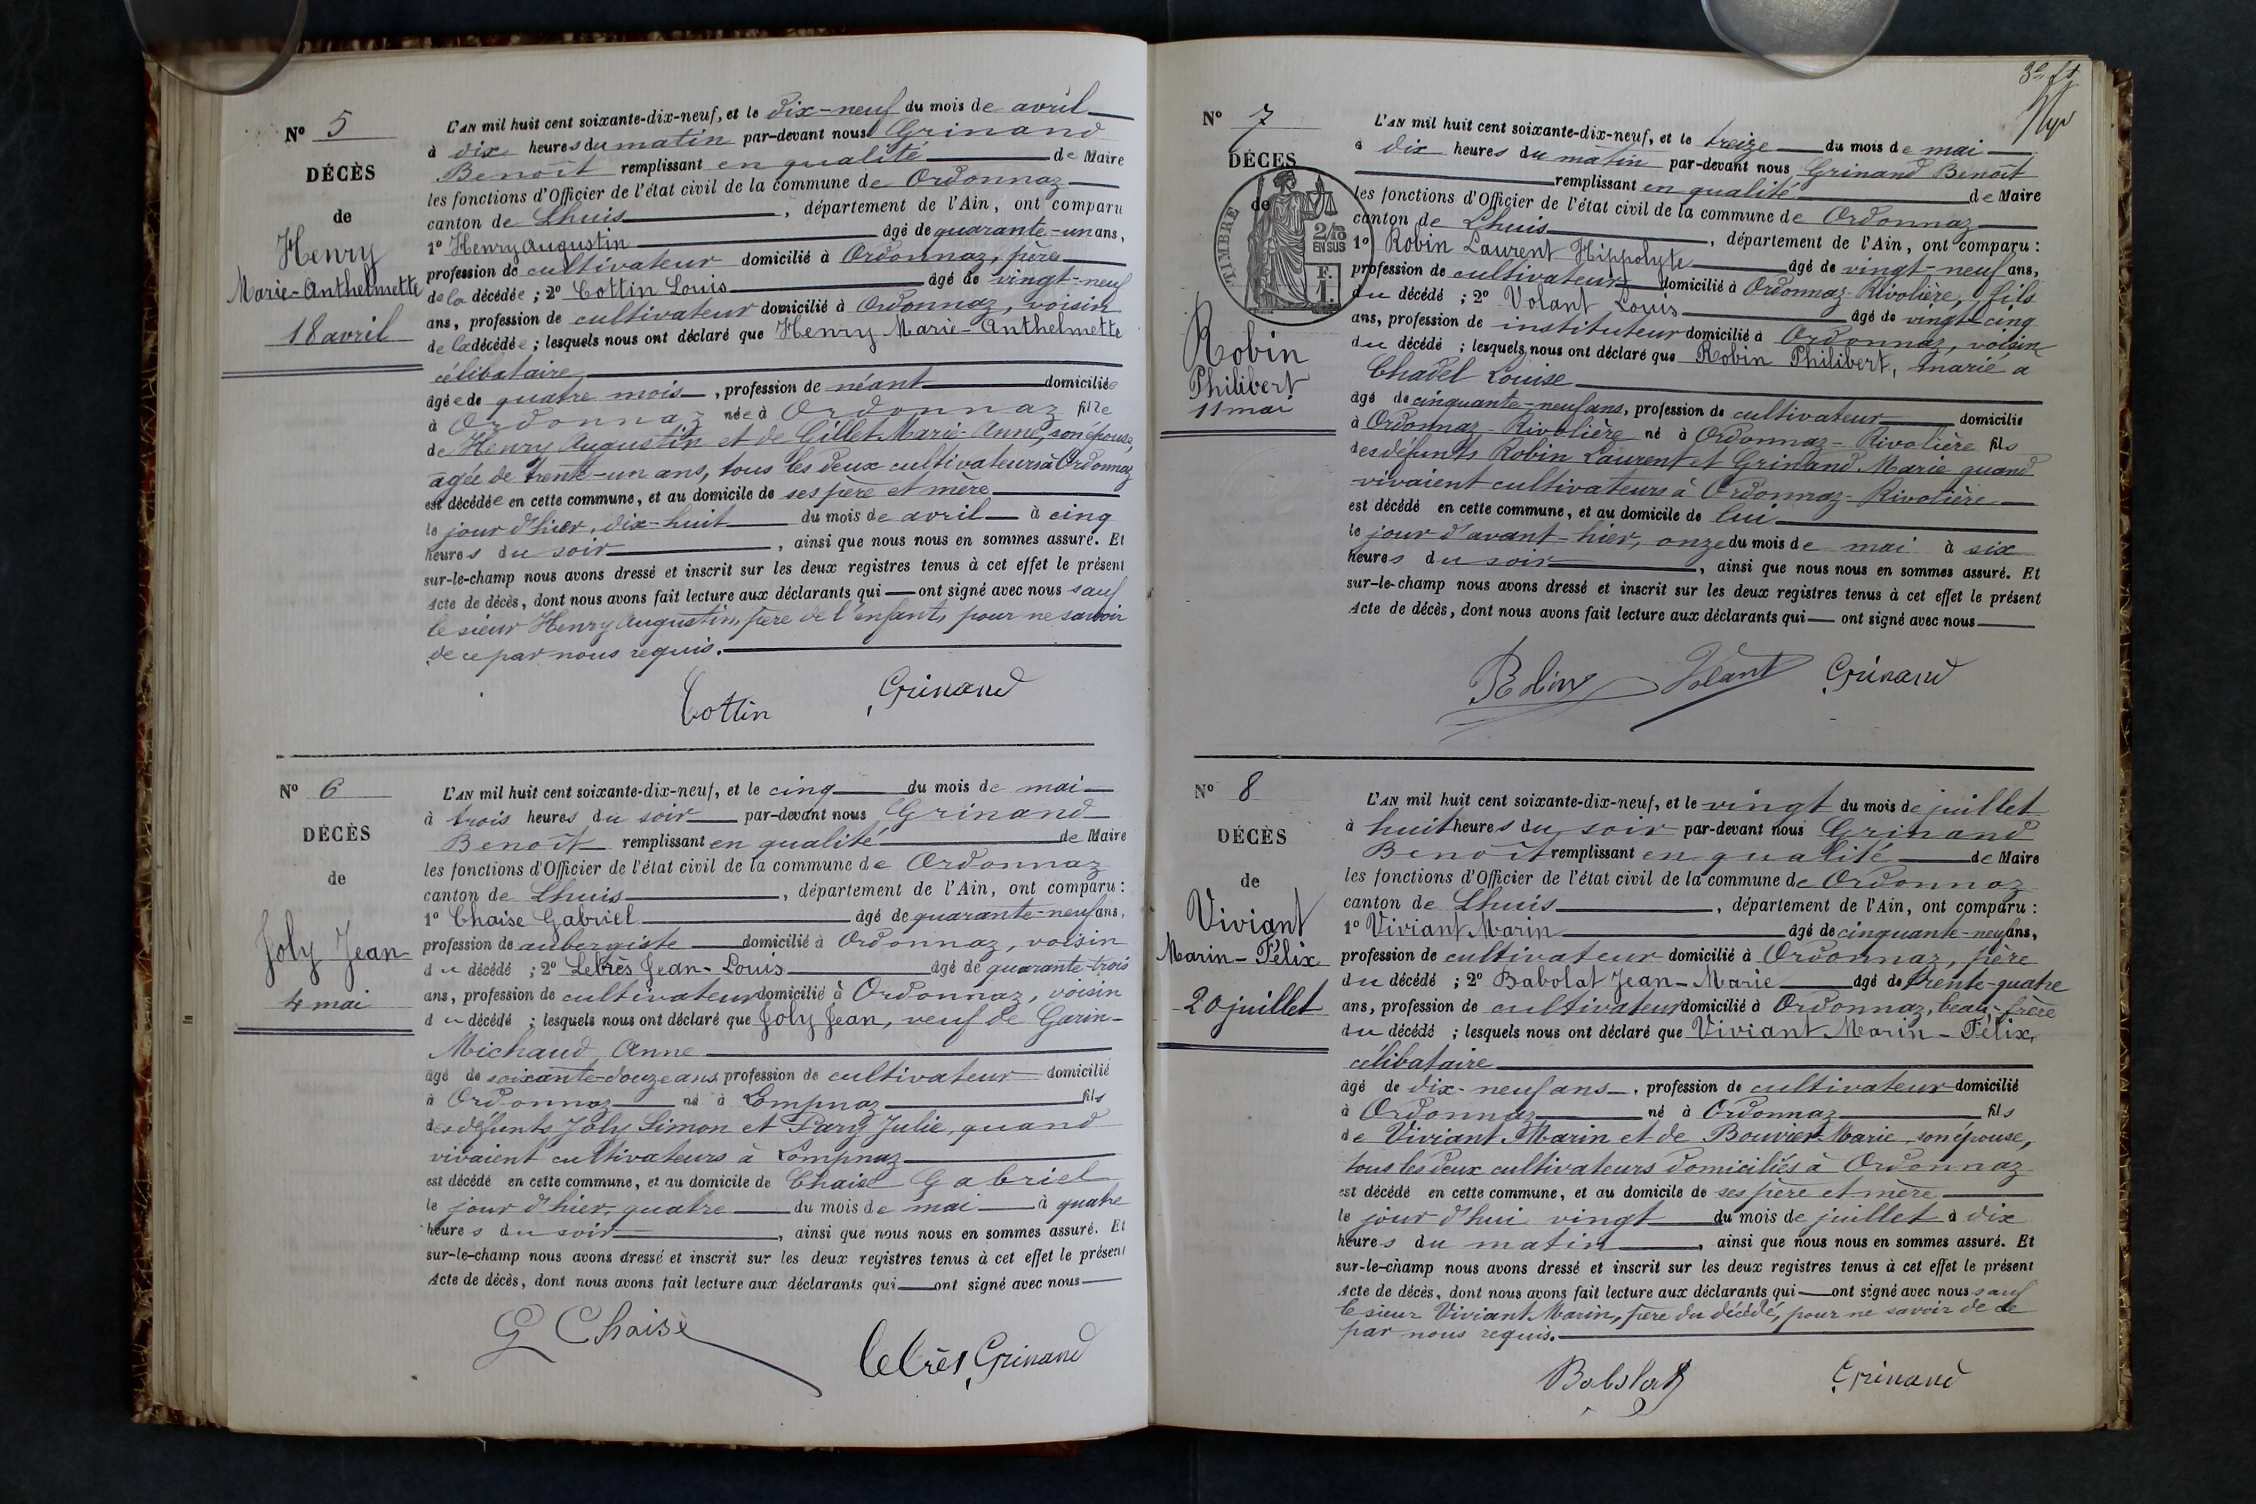 N° 5
DÉCÈS
de
Henry
Marie-Anthelmette
18 avril
L'AN mil huit cent soixante-dix-neuf, et le dix-neuf du mois de avril
à dix heures du matin par-devant nous Grinand
Benoît remplissant en qualité de Maire
les fonctions d'Officier de l'état civil de la commune de Ordonnaz
canton de Lhuis, département de l'Ain, ont comparu
1° Henry Augustin âgé de quarante-un ans,
profession de cultivateur domicilié à Ordonnaz, père
de la décédée ; 2° Cottin Louis âgé de vingt-neuf
ans, profession de cultivateur domicilié à Ordonnaz, voisin
de la décédée ; lesquels nous ont déclaré que Henry Marie-Anthelmette
célibataire
âgée de quatre mois, profession de néant domiciliée
à Ordonnaz née à Ordonnaz fille
de Henry Augustin et de Gillet Marie-Anne, son épouse,
âgée de trente-un ans, tous les deux cultivateurs à Ordonnaz
est décédée en cette commune, et au domicile de ses père et mère
le jour d'hier, dix-huit du mois de avril à cinq
heures du soir, ainsi que nous nous en sommes assuré. Et
sur-le-champ nous avons dressé et inscrit sur les deux registres tenus à cet effet le présent
Acte de décès, dont nous avons fait lecture aux déclarants qui ont signé avec nous sauf
le sieur Henry Augustin, père de l'enfant, pour ne savoir
de ce par nous requis.
Cottin Grinand
N° 6
DÉCÈS
de
Joly Jean
4 mai
L'AN mil huit cent soixante-dix-neuf, et le cinq du mois de mai
à trois heures du soir par-devant nous Grinand
Benoît remplissant en qualité de Maire
les fonctions d'Officier de l'état civil de la commune de Ordonnaz
canton de Lhuis, département de l'Ain, ont comparu :
1° Chaise Gabriel âgé de quarante-neuf ans,
profession de aubergiste domicilié à Ordonnaz, voisin
du décédé ; 2° Lebrès Jean-Louis âgé de quarante-trois
ans, profession de cultivateur domicilié à Ordonnaz, voisin
du décédé ; lesquels nous ont déclaré que Joly Jean, veuf de Garin-
Michaud Anne
âgé de soixante-douze ans profession de cultivateur domicilié
à Ordonnaz né à Lompnaz fils
des défunts Joly Simon et Pary Julie, quand
vivaient cultivateurs à Lompnaz
est décédé en cette commune, et au domicile de Chaise Gabriel
le jour d'hier, quatre du mois de mai à quatre
heures du soir, ainsi que nous nous en sommes assuré. Et
sur-le-champ nous avons dressé et inscrit sur les deux registres tenus à cet effet le présent
Acte de décès, dont nous avons fait lecture aux déclarants qui ont signé avec nous
G Chaise
Lebrès Grinand
3e ft
N° 7
DÉCÈS
de
TIMBRE
2/10
EN SUS
F.
1.
Robin
Philibert
11 mai
L'AN mil huit cent soixante-dix-neuf, et le treize du mois de mai
à dix heures du matin par-devant nous Grinand Benoît
remplissant en qualité de Maire
les fonctions d'Officier de l'état civil de la commune de Ordonnaz
canton de Lhuis, département de l'Ain, ont comparu :
1° Robin Laurent Hippolyte âgé de vingt-neuf ans,
profession de cultivateur domicilié à Ordonnaz-Rivolière, fils
du décédé ; 2° Volant Louis âgé de vingt-cinq
ans, profession de instituteur domicilié à Ordonnaz, voisin
du décédé ; lesquels nous ont déclaré que Robin Philibert, marié a
Chadel Louise
âgé de cinquante-neuf ans, profession de cultivateur domicilié
à Ordonnaz-Rivolière né à Ordonnaz-Rivolière fils
des défunts Robin Laurent et Grinand Marie quand
vivaient cultivateurs à Ordonnaz-Rivolière
est décédé en cette commune, et au domicile de lui
le jour d'avant-hier, onze du mois de mai à six
heures du soir, ainsi que nous nous en sommes assuré. Et
sur-le-champ nous avons dressé et inscrit sur les deux registres tenus à cet effet le présent
Acte de décès, dont nous avons fait lecture aux déclarants qui ont signé avec nous
Robin Volant Grinand
N° 8
DÉCÈS
de
Viviant
Marin-Félix
20 juillet
L'AN mil huit cent soixante-dix-neuf, et le vingt du mois de juillet
à huit heures du soir par-devant nous Grinand
Benoît remplissant en qualité de Maire
les fonctions d'Officier de l'état civil de la commune de Ordonnaz
canton de Lhuis, département de l'Ain, ont comparu :
1° Viviant Marin âgé de cinquante-neuf ans,
profession de cultivateur domicilié à Ordonnaz, père
du décédé ; 2° Babolat Jean-Marie âgé de trente-quatre
ans, profession de cultivateur domicilié à Ordonnaz, beau-frère
du décédé ; lesquels nous ont déclaré que Viviant Marin-Félix,
célibataire
âgé de dix-neuf ans, profession de cultivateur domicilié
à Ordonnaz né à Ordonnaz fils
de Viviant Marin et de Bouvier Marie, son épouse,
tous les deux cultivateurs domiciliés à Ordonnaz
est décédé en cette commune, et au domicile de ses père et mère
le jour d'hui vingt du mois de juillet à dix
heures du matin, ainsi que nous nous en sommes assuré. Et
sur-le-champ nous avons dressé et inscrit sur les deux registres tenus à cet effet le présent
Acte de décès, dont nous avons fait lecture aux déclarants qui ont signé avec nous sauf
le sieur Viviant Marin, père du décédé, pour ne savoir de ce
par nous requis.
Babolat Grinand